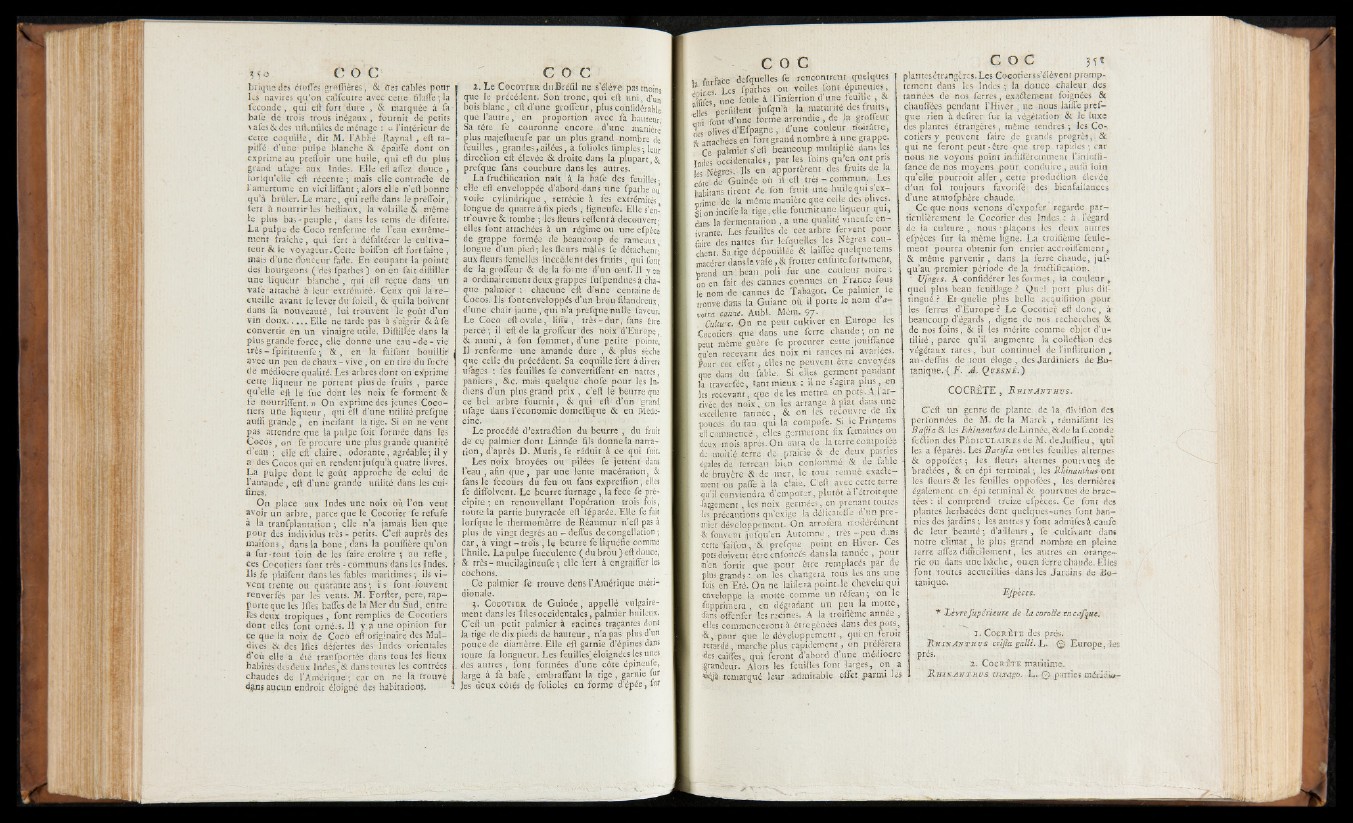 350 COC
brique des étoffes grossières, & des cables pour
les navires qu'on calfeutre avec cette filasse; la
seconde, qui est fort dure, & marquée à sa
base de trois trous inégaux, fournit de petits
vases & des ustensiles de ménage : « l'intérieur de
cette coquille, dit M. l'Abbé Raynal, est ta-
pissé d'une pulpe blanche & épaisse dont on
exprime au pressoir une huile, qui est du plus
grand usage aux Indes. Elle est assez douce,
lorsqu'elle est récente; mais elle contracte de
l'amertume en vieillissant; alors elle n'est bonne
qu'à brûler. Le marc, qui reste dans le pressoir,
sert à nourrir les bestiaux, la volaille & même
le plus bas-peuple, dans les tems de disette.
La pulpe de Coco renferme de l'eau extrême-
ment fraîche, qui sert à désaltérer le cultiva-
teur & le voyageur. Cette boisson est fort saine,
mais d'une douceur fade. En coupant la pointe
des bourgeons (des spathes) on en fait distiller
une liqueur blanche, qui est reçue dans un
vase attaché à leur extrémité. Ceux qui la re-
cueille avant le lever du soleil, & qui la boivent
dans sa nouveauté, lui trouvent le goût d'un
vin doux..... Elle ne tarde pas à s'aigrir & à se
convertir en un vinaigre utile. Distillée dans sa
plus grande force, elle donne une eau-de-vie
très-spiritueuse; &, en la faisant bouillir
avec un peu de chaux-vive, on en tire du sucre
de médiocre qualité. Les arbres dont on exprime
cette liqueur ne portent plus de fruits, parce
qu'elle est le suc dont les noix se forment &
se nourrissent. » On exprime des jeunes Coco-
tiers une liqueur, qui est d'une utilité presque
aussi grande, en incisant la tige. Si on ne veut
pas attendre que la pulpe soit formée dans les
Cocos, on se procure une plus grande quantité
d'eau; elle est claire, odorante, agréable; il y
a des Cocos qui en rendent jusqu'à quatre livres.
La pulpe dont le goût approche de celui de
l'amande, est d'une grande utilité dans les cui-
sines.
On place aux Indes une noix où l'on veut
avoir un arbre, parce que le Cocotier se refuse
à la transplantation; elle n'a jamais lieu que
pour des individus très-petits. C'est auprès des
maisons, dans la boue, dans la poussière qu'on
a sur-tout soin de les faire croître; au reste,
ces Cocotiers sont très-communs dans les Indes.
Ils se plaisent dans les sables maritimes; ils vi-
vent trente ou quarante ans; ils sont souvent
renversés par les vents. M. Forster, pere, rap-
porte que les Isles basses de la Mer du Sud, entre
les deux tropiques, sont remplies de Cocotiers
dont elles sont ornées. Il y a une opinion sur
ce que la noix de Coco est originaire des Mal-
dives & des Isles désertes des Indes orientales
d'où elle a été transportée dans tous les lieux
habités des deux Indes, & dans toutes les contrées
chaudes de l'Amérique; car on ne la trouve
dans aucun endroit éloigné des habitations.
COC
2. Le COCOTIER du Brésil ne s'élève pas moins
que le précédent. Son tronc, qui est uni, d'un
bois blanc, est d'une grosseur, plus considérable
que l'autre, en proportion avec sa hauteur.
Sa tête se couronne encore d'une manière
plus majestueuse par un plus grand nombre de
feuilles, grandes, ailées, à folioles simples; leur
direction est élevée & droite dans la plupart, &
presque sans courbure dans les autres.
La fructification naît à la base des feuilles;
elle est enveloppée d'abord dans une spathe ou
voile cylindrique, retrécie à ses extrémités,
longue de quatre à six pieds, ligneuse. Elle s'en-
tr'ouvre & tombe; les fleurs restent à découvert;
elles sont attachées à un régime ou une espèce
de grappe formée de beaucoup de rameaux,
longue d'un pied; les fleurs mâles se détachent;
aux fleurs femelles succèdent des fruits, qui sont
de la grosseur & de la forme d'un œuf. Il y en
a ordinairement deux grappes suspendues à cha-
que palmier : chacune est d'une centaine de
Cocos. Ils sont enveloppés d'un brou filandreux,
d'une chair jaune, qui n'a presque nulle saveur.
Le Coco est ovale, lisse, très-dur, sans être
percé; il est de la grosseur des noix d'Europe,
& muni, à son sommet, d'une petite pointe.
Il renferme une amande dure, & plus sèche
que celle du précédent. Sa coquille sert à divers
usages : ses feuilles se convertissent en nattes,
paniers, &c. mais quelque chose pour les In-
diens d'un plus grand prix, c'est le beurre que
ce bel arbre fournit, & qui est d'un grand
usage dans l'économie domestique & en Méde-
cine.
Le procédé d'extraction du beurre, du fruit
de ce palmier dont Linnée fils donne la narra-
tion, d'après D. Muris, se réduit à ce qui suit.
Les noix broyées ou pilées se jettent dans
l'eau, afin que, par une lente macération, &
sans le secours du feu ou sans expression, elles
se dissolvent. Le beurre surnage, la fece se pré-
cipite; en renouvellant l'opération trois fois,
toute la partie butyracée est séparée. Elle se fait
lorsque le thermomètre de Réaumur n'est pas à
plus de vingt degrés au-dessus de congellation;
car, à vingt-trois, le beurre se liquéfie comme
l'huile. La pulpe succulente (du brou) est douce,
& très-mucilagineuse; elle sert à engraisser les
cochons.
Ce palmier se trouve dans l'Amérique méri-
dionale.
3. COCOTIER de Guinée, appellé vulgaire-
ment dans les Isles occidentales, palmier huileux.
C'est un petit palmier à racines traçantes dont
la tige de dix pieds de hauteur, n'a pas plus d'un
pouce de diamètre. Elle est garnie d'épines dans
toute sa longueur. Les feuilles, éloignées les unes
des autres, sont formées d'une côte épineuse,
large à sa base, embrassant la tige, garnie sur
les deux côtés de folioles en forme d'épée, sur
COC
la surface desquelles se rencontrent quelques
épines. Les spathes ou voiles sont épineuses,
une seule à l'insertion d'une feuille, &
elles persistent jusqu'à la maturité des fruits,
qui sont d'une forme arrondie, de la grosseur
des olives d'Espagne, d'une couleur noirâtre,
& attachées en fort grand nombre à une grappe.
Ce palmier s'est beaucoup multiplié dans les
Indes occidentales, par les soins qu'en ont pris
les Nègres. Ils en apportèrent des fruits de la
côte de Guinée où il est très-commun. Les
habitans tirent de son fruit une huile qui s'ex-
prime de la même manière que celle des olives.
Si on incise la tige, elle fournit une liqueur qui,
dans la fermentation, a une qualité vineuse en-
ivrante. Les feuilles de cet arbre servent pour
faire des nattes sur lesquelles les Nègres cou-
chent. Sa tige dépouillée & laissée quelque tems
macérer dans le vase, & frotter ensuite fortement,
prend un beau poli sur une couleur noire:
on en fait des cannes connues en France sous
le nom de cannes de Tabago. Ce palmier se
trouve dans la Guiane où il porte le nom d'a-
voira canne. Aubl. Mém. 97.
Culture. On ne peut cultiver en Europe les
Cocotiers que dans une serre chaude; on ne
peut même guère se procurer cette jouissance
qu'en recevant des noix ni rances ni avariées.
Pour cet effet, elles ne peuvent être envoyées
que dans du sable. Si elles germent pendant
la traversée, tant mieux : il ne s'agira plus, en
les recevant, que de les mettre en pots. A l'ar-
rivée des noix, on les arrange à plat dans une
excellente tannée, & on les recouvre de six
pouces du tan qui la compose. Si le Printems
est commencé, elles germeront six semaines ou
deux mois après. On aura de la terre composée
de moitié terre de prairie & de deux parties
égales de terreau bien consommé & de sable
de bruyère & de mer, le tout remué exacte-
ment ou passé à la claie. C'est avec cette terre
qu'il conviendra d'empoter, plutôt à l'étroit que
largement, les noix germées, en prenant toutes
les précautions qu'exige la délicatesse d'un pre-
mier développement. On arrosera modérément
& souvent jusqu'en Automne, très-peu dans
cette saison, & presque point en Hiver. Ces
pots doivent être enfoncés dans la tannée, pour
n'en sortir que pour être remplacés par de
plus grands : on les changera tous les ans une
fois en Eté. On ne laissera point le chevelu qui
enveloppe la motte comme un réseau; on le
supprimera, en dégradant un peu la motte,
sans offenser les racines. A la troisième année,
elles commenceront à être gênées dans des pots,
&, pour que le développement, qui en seroit
retardé, marche plus rapidement, on préférera
des caisses, qui seront d'abord d'une médiocre
grandeur. Alors les feuilles sont larges, on a
déjà remarqué leur admirable effet parmi les
COC 351
plantes étrangères. Les Cocotiers s'élèvent promp-
tement dans les Indes; la douce chaleur des
tannées de nos serres, exactement soignées &
chauffées pendant l'Hiver, ne nous laisse pres-
que rien à desirer sur la végétation & le luxe
des plantes étrangères, même tendres; les Co-
cotiers y peuvent faire de grands progrès, &
qui ne seront peut-être que trop rapides; car
nous ne voyons point indifféremment l'insuffi-
sance de nos moyens pour conduire, aussi loin
qu'elle pourroit aller, cette production élevée
d'un sol toujours favorisé des bienfaisances
d'une atmosphère chaude.
Ce que nous venons d'exposer regarde par-
ticulièrement le Cocotier des Indes : à l'égard
de la culture, nous plaçons les deux autres
espèces sur la même ligne. La troisième seule-
ment pourra obtenir son entier accroissement,
& même parvenir, dans la serre chaude, jus-
qu'au premier période de la fructification.
Usages. A considérer les formes, la couleur,
quel plus beau feuillage? Quel port plus dis-
tingué? Et quelle plus belle acquisition pour
les serres d'Europe? Le Cocotier est donc, à
beaucoup d'égards, digne de nos recherches &
de nos soins, & il les mérite comme objet d'u-
tilité, parce qu'il augmente la collection des
végétaux rares, but continuel de l'institution,
au-dessus de tout éloge, des Jardiniers de Bo-
tanique. (F. A. QUESNÉ.)
COCRÈTE, RHINANTHUS.
C'est un genre de plante de la division des
personnées de M. de la Marck, réunissant les
Bartsia & les Rhinanthus de Linnée, & de la seconde
section des PÉDICULAIRES de M. de Jussieu, qui
les a séparés. Les Bartsia ont les feuilles alternes
& opposées; les fleurs alternes pourvues de
bractées, & en épi terminal; les Rhinanthus ont
les fleurs & les feuilles opposées, les dernières
également en épi terminal & pourvues de brac-
tées : il comprend treize espèces. Ce sont des
plantes herbacées dont quelques-unes sont ban-
nies des jardins; les autres y sont admises à cause
de leur beauté; d'ailleurs, se cultivant dans
notre climat, le plus grand nombre en pleine
terre assez difficilement, les autres en orange-
rie ou dans une bâche, ou en serre chaude. Elles
sont toutes accueillies dans les Jardins de Bo-
tanique.
Espèces.
* Lèvre supérieure de la corolle en casque.
1. COCRÈTE des prés.
RHINANTHUS crista galli. L. ☉ Europe, les
prés.
2. COCRÈTE maritime.
RHINANTHUS trixago. L. ☉ parties méridio-